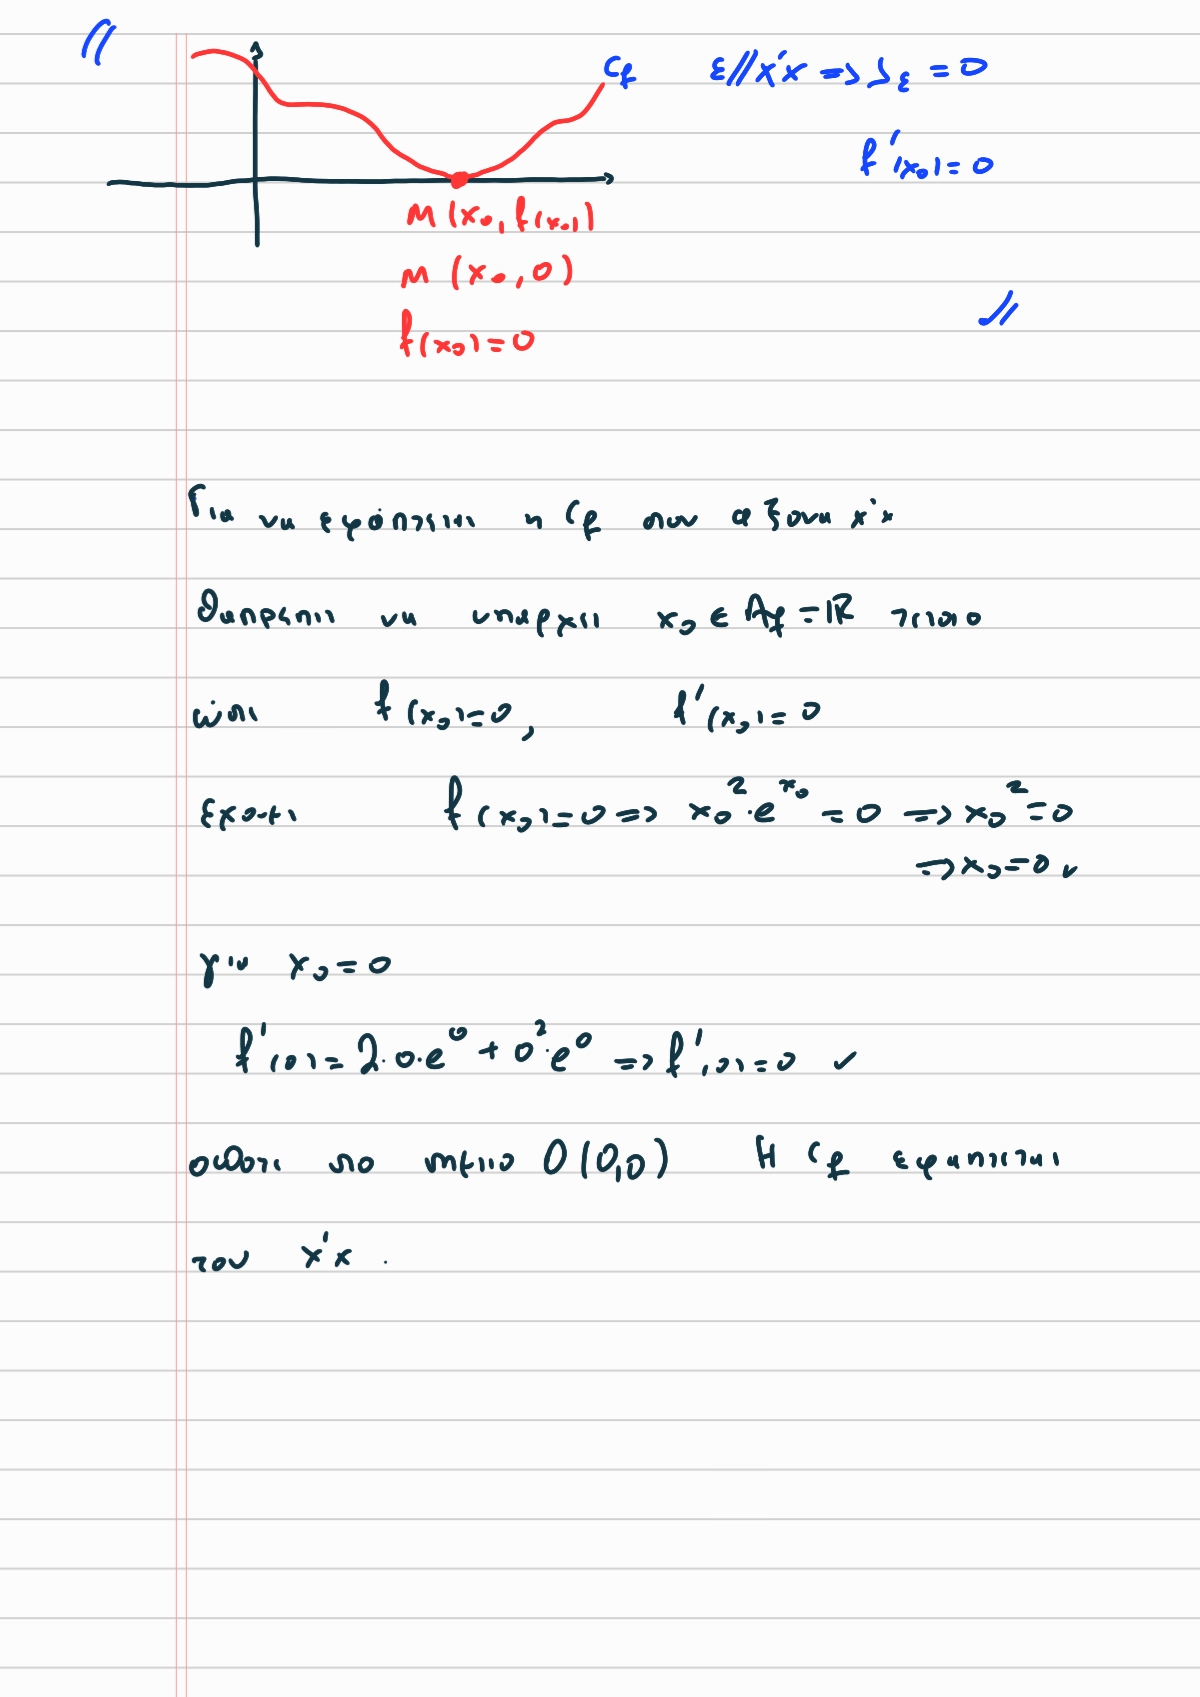 "
C_f
ε//x'x ⇒ λ_ε = 0
f'(x₀) = 0
M(x₀, f(x₀))
M(x₀, 0)
f(x₀) = 0
"
Για να εφάπτεται η C_f στον αξονα x'x
θα πρεπει να υπαρχει x₀ ∈ A_f = ℝ τετοιο
ώστε f(x₀) = 0, f'(x₀) = 0
Εχουμε f(x₀) = 0 ⇒ x₀²·e^{x₀} = 0 ⇒ x₀² = 0
⇒ x₀ = 0 ✓
για x₀ = 0
f'(0) = 2·0·e⁰ + 0²·e⁰ ⇒ f'(0) = 0 ✓
οποτε στο σημειο O(0,0) Η C_f εφαπτεται
του x'x.